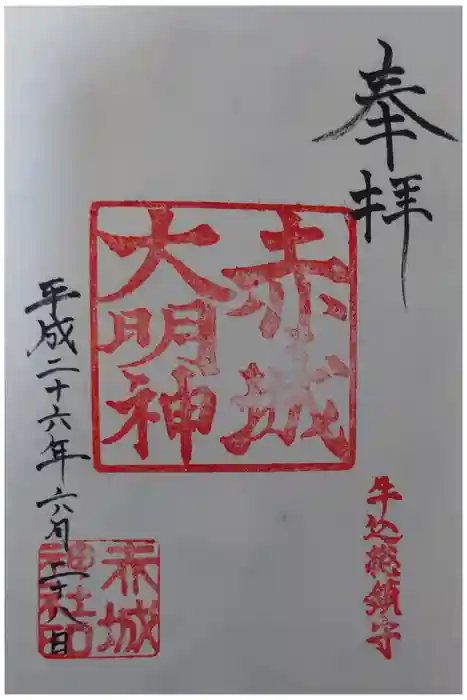 奉拝
赤城
大明神
牛込総鎮守
平成二十六年六月二十八日
赤城
神社印